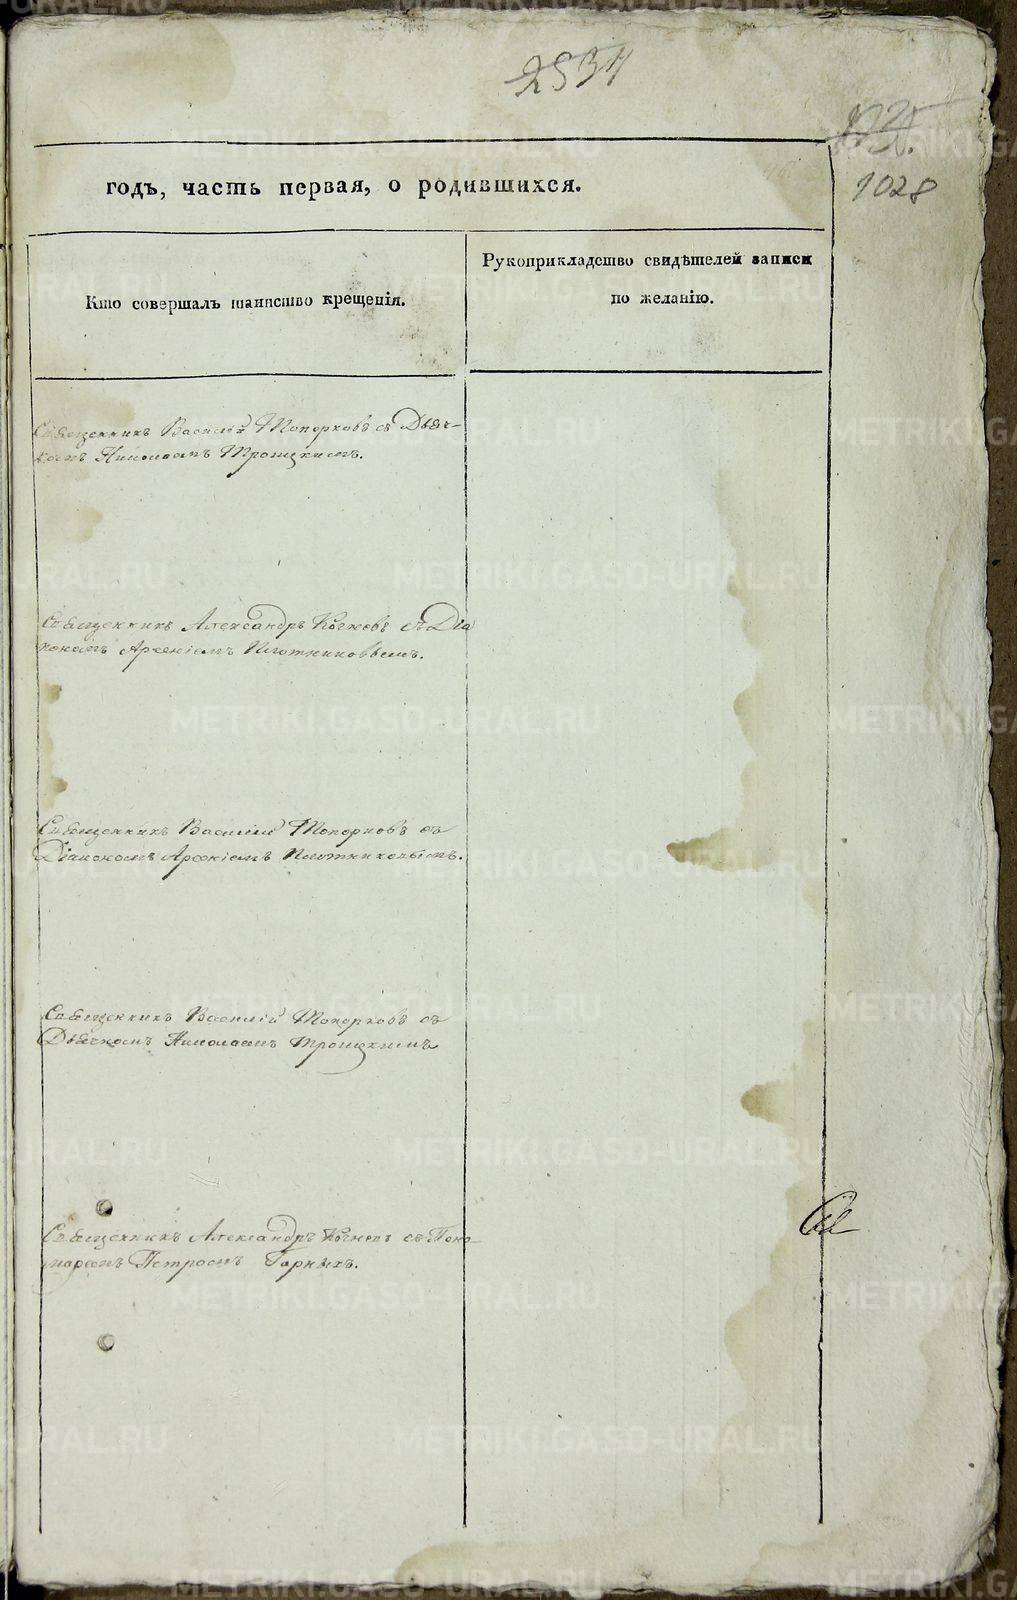 2534
1028
годъ, часть первая, о родившихся.
Кто совершалъ таинство крещенія.
Рукоприкладство свидѣтелей записи
по желанію.
Священникъ Василій Топорковъ съ Дьяч-
комъ Николаемъ Троицкимъ.
Священникъ Александръ Кочневъ съ Діа
кономъ Арсеніемъ Плотниковымъ.
Священникъ Василій Топорковъ съ
Діакономъ Арсеніемъ Плотниковымъ.
Священникъ Василій Топорковъ съ
Дьячкомъ Николаемъ Троицкимъ
Священникъ Александръ Кочневъ съ Поно-
маремъ Петромъ Горныхъ.
METRIKI.GASO-URAL.RU